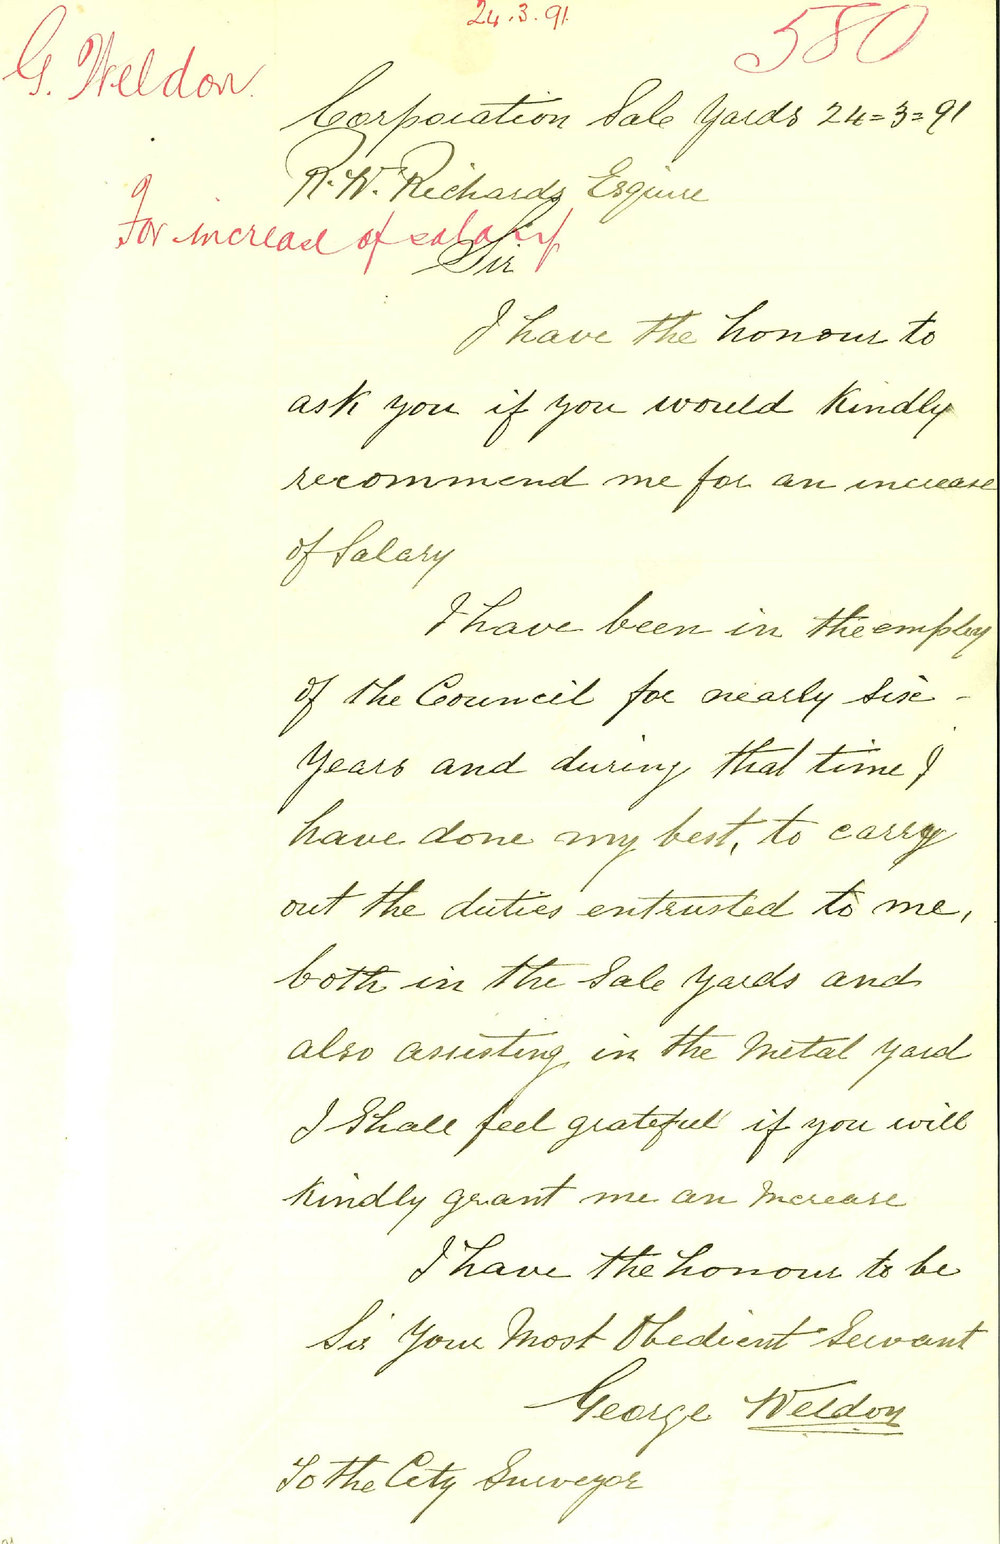 24.3.91
580
G. Weldon
Corporation Sale Yards 24=3=91
R. W. Richards Esquire
For increase of salary
Sir
I have the honour to
ask you if you would kindly
recommend me for an increase
of Salary
I have been in the employ
of the Council for nearly six -
years and during that time I
have done my best, to carry
out the duties entrusted to me,
both in the Sale yards and
also assisting in the Metal yard
I Shall feel grateful if you will
kindly grant me an Increase
I have the honour to be
Sir Your Most Obedient Servant
George Weldon
To the City Surveyor